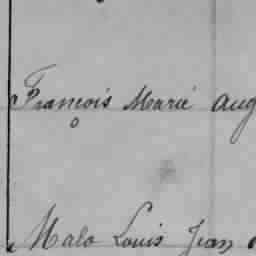 François Marie Aug
Malo Louis Jean